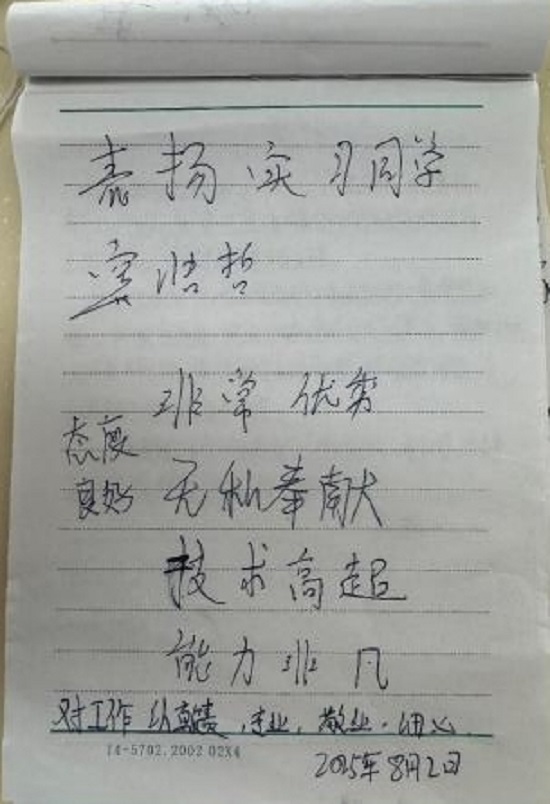 表扬实习同学
浩哲
非常优秀
态度
良好 无私奉献
技术高超
能力非凡
对工作认真负责,专业,敬业,用心.
14-5702.2002 02X4
2025年8月2日